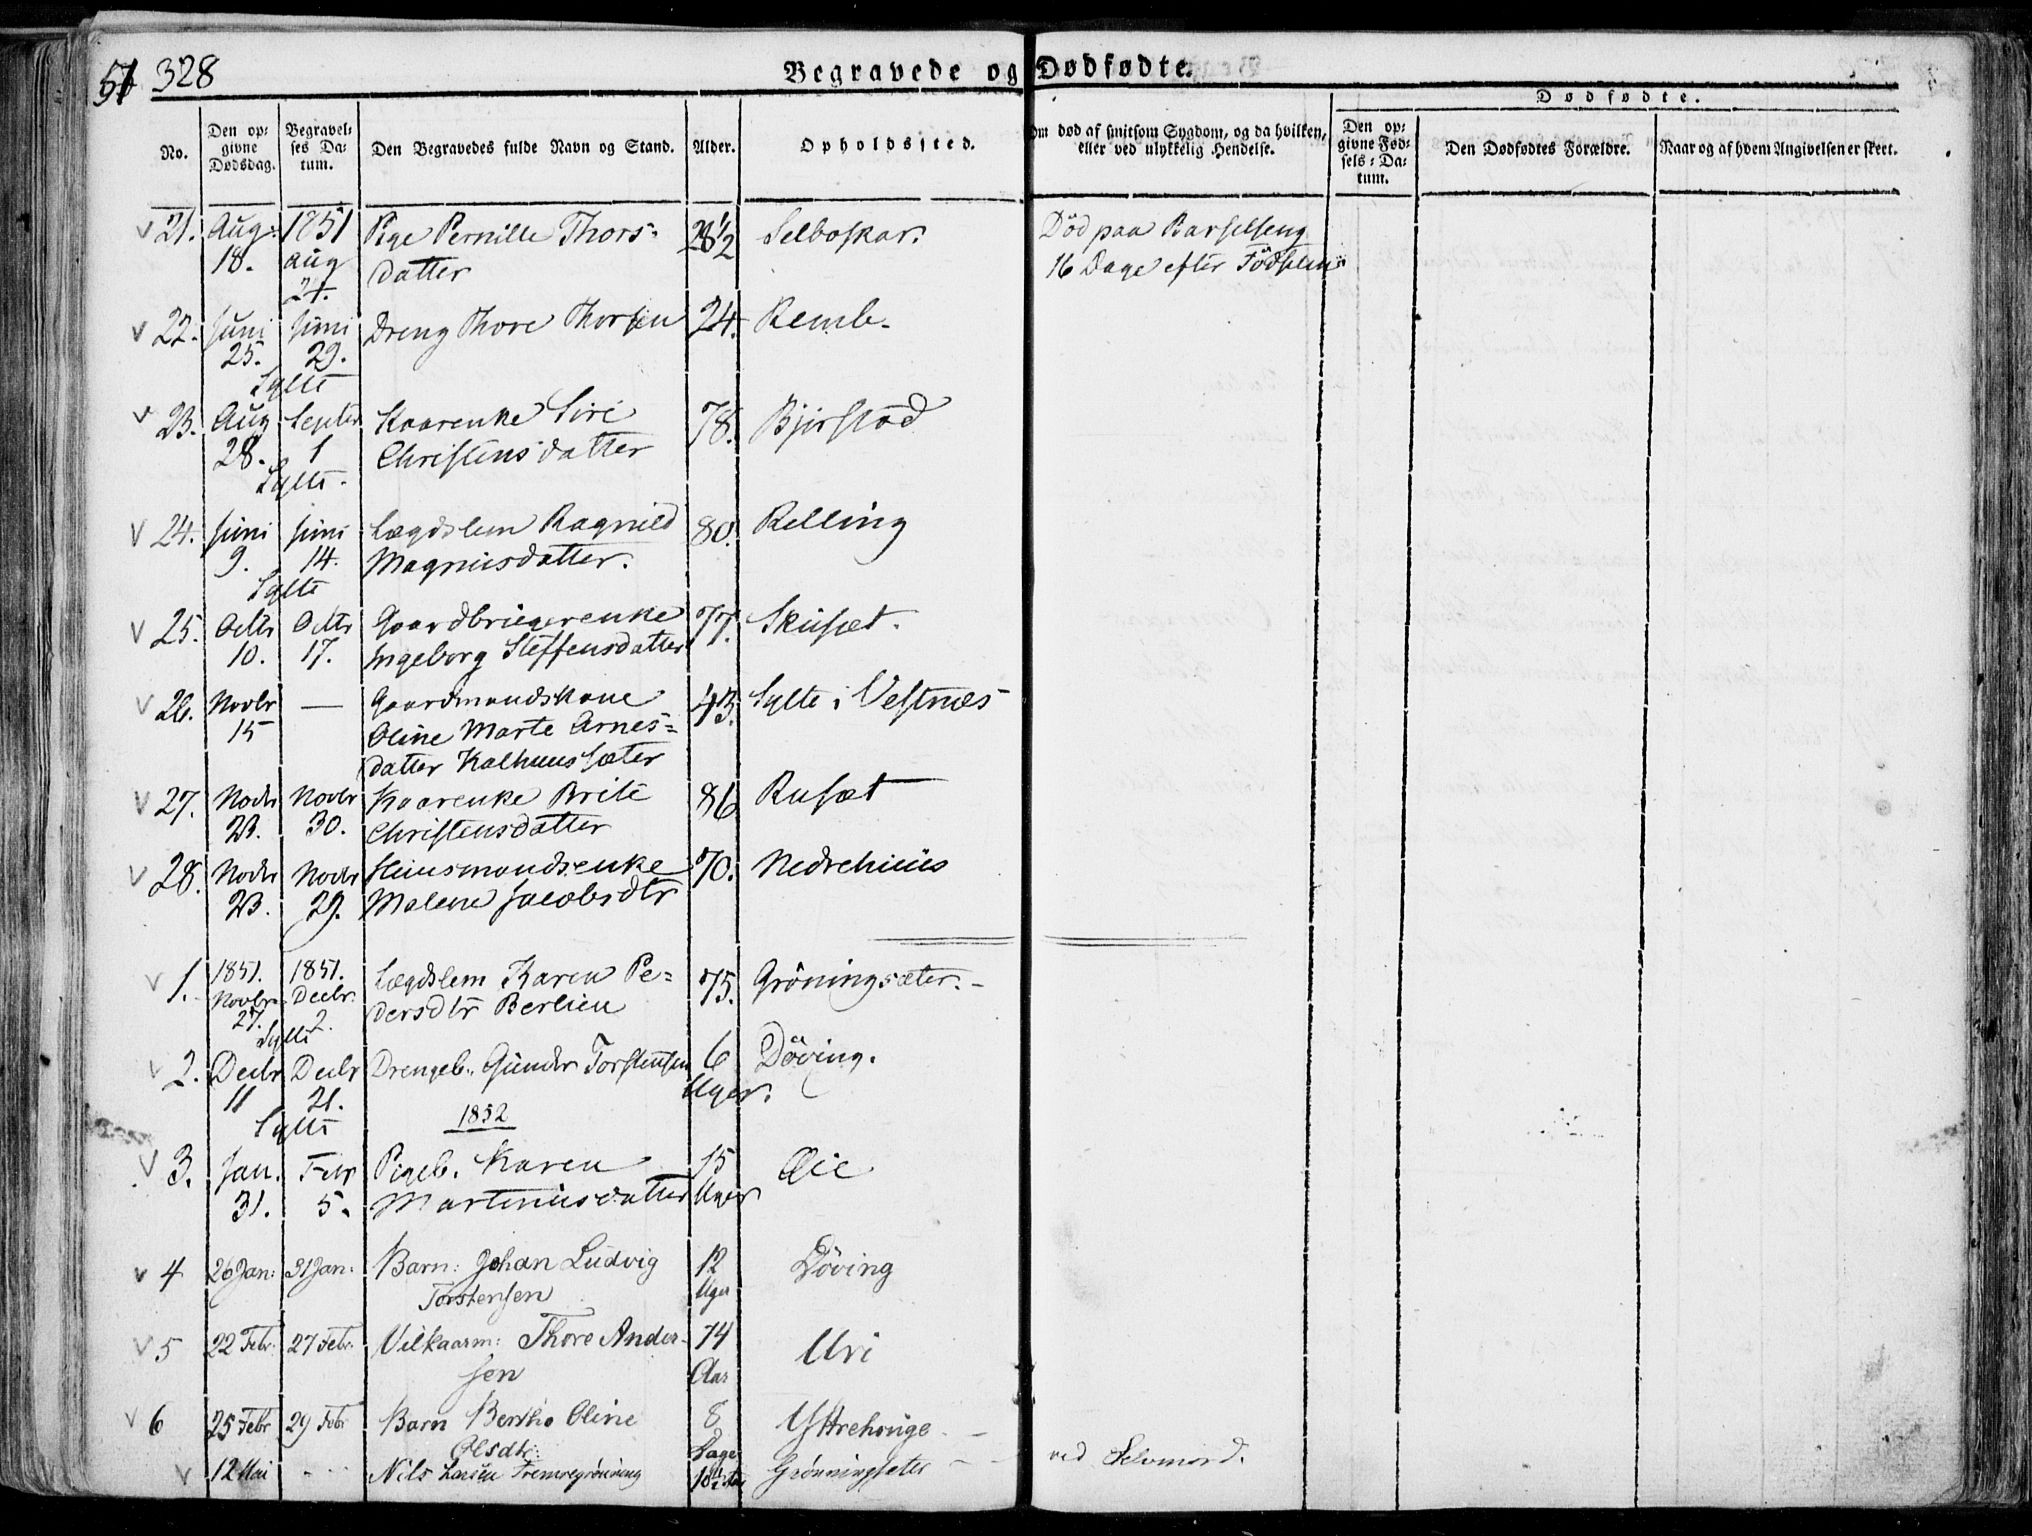 51 328
Begravede og Dødfødte.
Dødfødte.
No.
Den op-
givne
Dødsdag.
Begravel-
ses Da-
tum.
Den Begravedes fulde Navn og Stand.
Alder.
Opholdssted.
Om død af smitsom Sygdom, og da hvilken,
eller ved ulykkelig Hendelse.
Den op-
givne Fød-
sels-Da-
tum.
Den Dødfødtes Forældre.
Naar og af hvem Angivelsen er skeet.
21. Aug: 1851 Pige Pernille Thors- 28 1/2 Selboskar. Död paa Barselseng
18. Aug datter 16 Dage efter Födselen
24.
22. Juni Juni Dreng Thore Thorsen 24. Remb.
25. 29.
Sylte
23. Aug Septbr Kaarenke Siri 78. Bjirstad
28. 1 Christensdatter
Sylte.
24. Juni Juni Lægdslem Ragnild 80. Relling
9. 14. Magnusdatter.
Sylte
25. Octbr Octbr Gaardbrugerenke 77. Skusæt.
10. 17. Ingeborg Steffensdatter
26. Novbr — Gaardmandskone 43. Sylte i Vestnæs
15 Oline Marte Arnes-
datter Kalhuussæter
27. Novbr Novbr Kaarenke Brite 86 Rusæt
23. 30. Christensdatter
28. Novbr Novbr Huusmandsenke 70. Nedrehuus
23. 29. Malene Jacobsdtr
1. 1851. 1851. Lægdslem Karen Pe- 75. Gröningsæter.
Novbr Decbr. dersdtr Berlien
27. 2.
Sylte
2. Decbr Decbr Drengeb. Gunder Torstensen 6 Döving.
11 21. Uger.
Sylte 1852
3. Jan. Febr Pigeb. Karen 15 Øie
31. 5. Martinusdatter Uger
4 26 Jan: 31 Jan: Barn: Johan Ludvig 12 Döving
Torstensen Uger
5 22 Febr. 27 Febr. Vilkaarm: Thore Ander- 74 Uri
sen Aar
6 25 Febr 29 Febr Barn Berthe Oline 8 Yttrehonge
Olsdtr: Dage
12 Mai Nils Larsen Fremregrönning 18 Grönningsæter ved Selvmord.